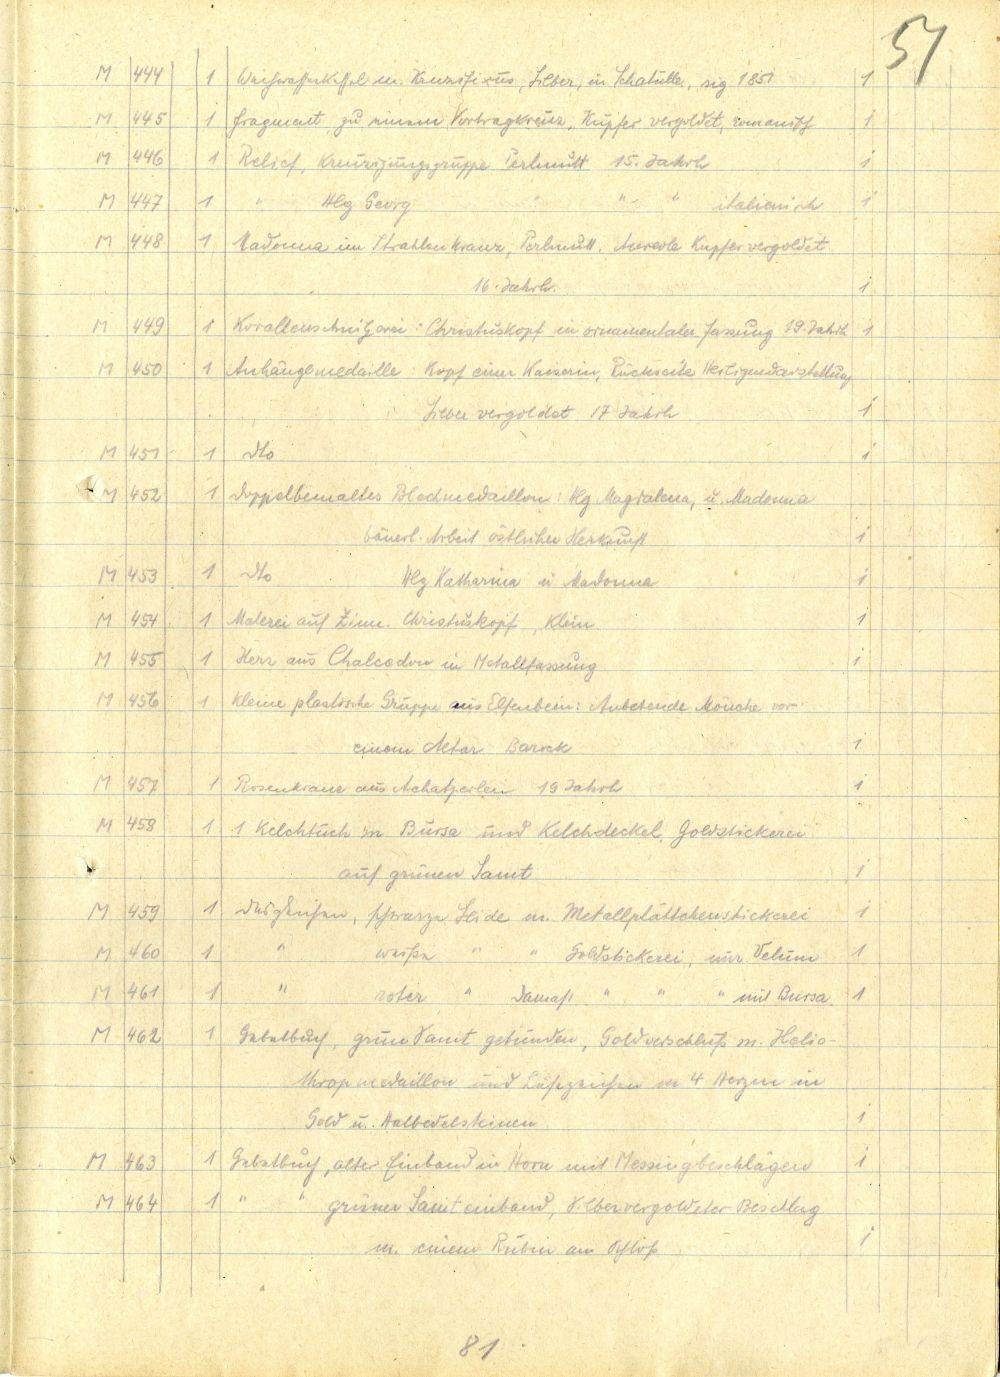 51
M 444 1 Weihwasserkessel m. Kruzifixus, Silber, in Schatulle, sig 1851 1
M 445 1 Fragment zu einem Vortragkreuz, Kupfer vergoldet, romanisch 1
M 446 1 Relief, Kreuzigungsgruppe Perlmutt 15. Jahrh 1
M 447 1 " Hlg Georg " " " italienisch 1
M 448 1 Madonna im Strahlenkranz, Perlmutt. Aureole Kupfer vergoldet
16. Jahrh. 1
M 449 1 Korallenschnitzerei: Christuskopf in ornamentaler Fassung 19. Jahrh 1
M 450 1 Anhängemedaille: Kopf einer Kaiserin, Rückseite Heiligendarstellung
Silber vergoldet 17 Jahrh 1
M 451 1 dto 1
M 452 1 Doppelbemaltes Blechmedaillon: Hlg. Magdalena, u. Madonna
bäuerl. Arbeit östlicher Herkunft 1
M 453 1 dto Hlg Katharina u Madonna 1
M 454 1 Malerei auf Zinn. Christuskopf, klein 1
M 455 1 Herz aus Chalcedon in Metallfassung 1
M 456 1 Kleine plastische Gruppe aus Elfenbein: Anbetende Mönche vor
einem Altar Barock 1
M 457 1 Rosenkranz aus Achatperlen 19 Jahrh 1
M 458 1 1 Kelchtuch m Bursa und Kelchdeckel, Goldstickerei
auf grünen Samt 1
M 459 1 desgleichen, schwarze Seide m. Metallplättchenstickerei 1
M 460 1 " weiße " " Goldstickerei, nur Velum 1
M 461 1 " roter " Damast " " " mit Bursa 1
M 462 1 Gebetbuch, grün Samt gebunden, Goldverschluß m. Helio-
thropmedaillon und Lesezeichen m 4 Herzen in
Gold u. Halbedelsteinen 1
M 463 1 Gebetbuch, alter Einband in Horn mit Messingbeschlägen 1
M 464 1 " " grüner Samteinband, Silbervergoldeter Beschlag
m. einem Rubin am Schloß 1
81